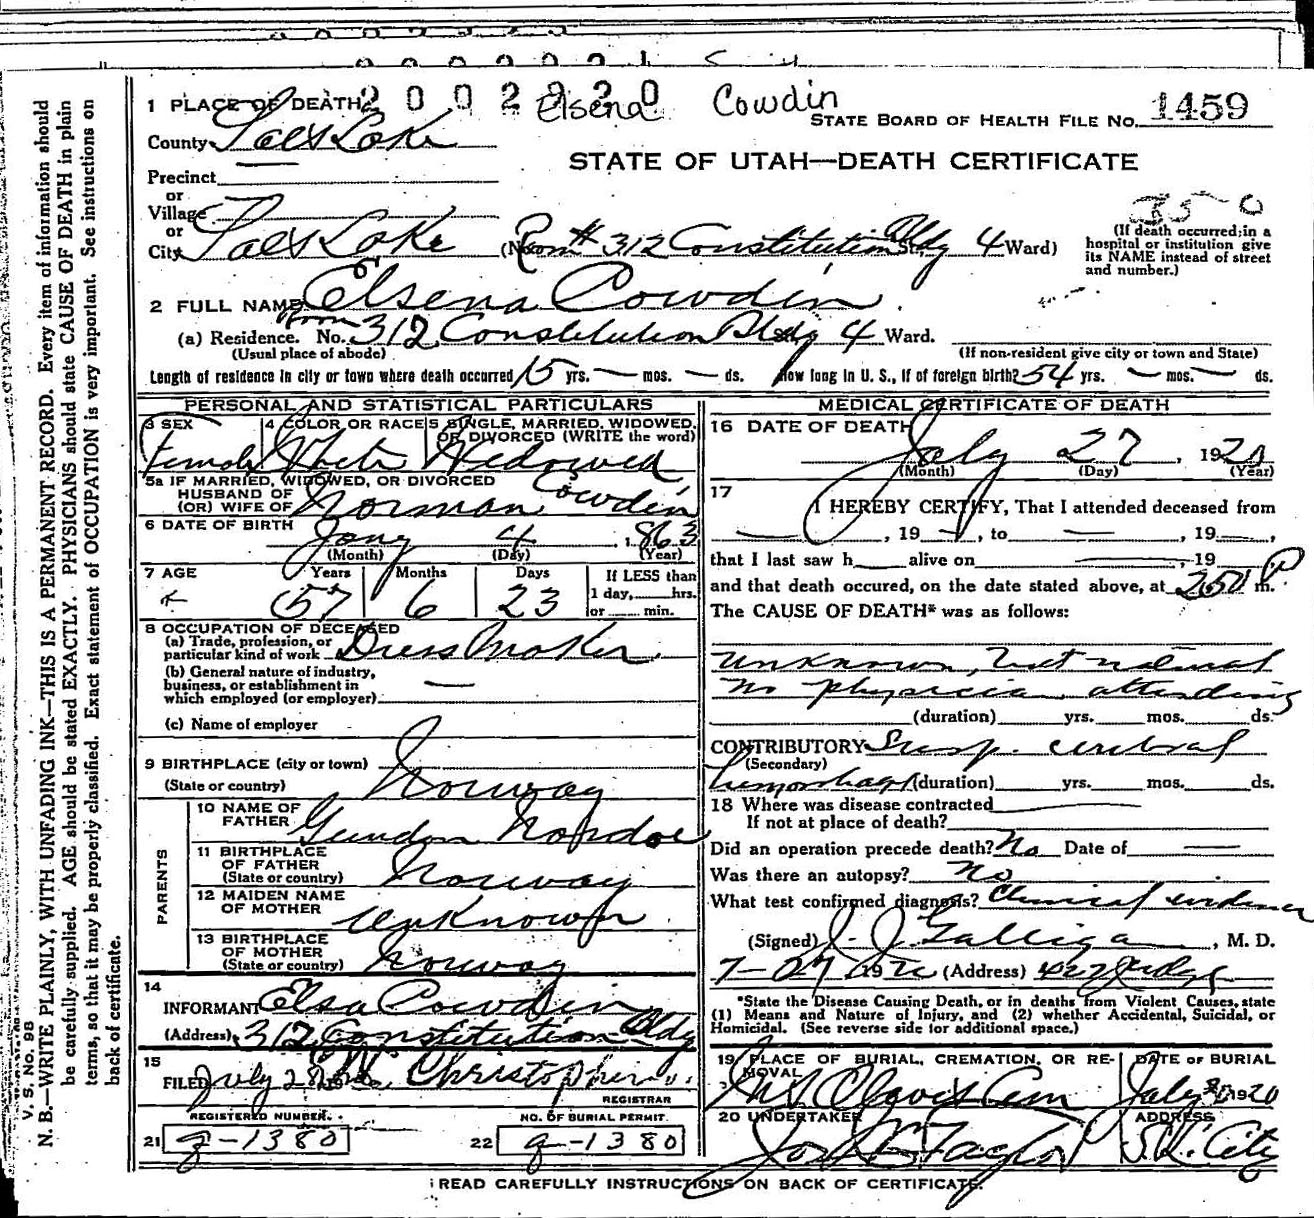 2002920 Elsena Cowdin
1 PLACE OF DEATH
STATE BOARD OF HEALTH FILE No. 1459
County Salt Lake
STATE OF UTAH—DEATH CERTIFICATE
Precinct
or
Village
or
City Salt Lake (No. Room # 312 Constitution Bldg St., 4 Ward)
(If death occurred in a
hospital or institution give
its NAME instead of street
and number.)
2 FULL NAME Elsena Cowdin
(a) Residence. No. Room 312 Constitution Bldg St., 4 Ward.
(Usual place of abode) (If non-resident give city or town and State)
Length of residence in city or town where death occurred 15 yrs. — mos. — ds. How long in U. S., if of foreign birth? 54 yrs. — mos. — ds.
PERSONAL AND STATISTICAL PARTICULARS
3 SEX 4 COLOR OR RACE 5 SINGLE, MARRIED, WIDOWED,
OR DIVORCED (WRITE the word)
Female White Widowed
5a IF MARRIED, WIDOWED, OR DIVORCED
HUSBAND OF
(OR) WIFE OF Norman Cowdin
6 DATE OF BIRTH
Jany 4, 1863
(Month) (Day) (Year)
7 AGE Years Months Days If LESS than
1 day, hrs.
57 6 23 or min.
8 OCCUPATION OF DECEASED
(a) Trade, profession, or
particular kind of work Dress Maker
(b) General nature of industry,
business, or establishment in
which employed (or employer) —
(c) Name of employer
9 BIRTHPLACE (city or town)
(State or country) Norway
PARENTS
10 NAME OF
FATHER
11 BIRTHPLACE
OF FATHER
(State or country) Norway
12 MAIDEN NAME
OF MOTHER Unknown
13 BIRTHPLACE
OF MOTHER
(State or country) Norway
14
INFORMANT Elsa Cowdin
(Address) 312 Constitution Bldg
15
FILED July 28 Christopherson
REGISTRAR
REGISTERED NUMBER. NO. OF BURIAL PERMIT.
21 g-1380 22 g-1380
MEDICAL CERTIFICATE OF DEATH
16 DATE OF DEATH
July 27, 1920
(Month) (Day) (Year)
17
I HEREBY CERTIFY, That I attended deceased from
—, 19—, to —, 19—,
that I last saw h alive on —, 19
and that death occured, on the date stated above, at 2:50 P m.
The CAUSE OF DEATH* was as follows:
Unknown, but natural
no physician attending
(duration) yrs. mos. ds.
CONTRIBUTORY Susp. cerebral
(Secondary)
hemorrhage (duration) yrs. mos. ds.
18 Where was disease contracted
If not at place of death?
Did an operation precede death? No Date of —
Was there an autopsy? No
What test confirmed diagnosis? Clinical evidence
(Signed) J. J. Galligan, M. D.
7-27 1920 (Address) 422 Judge
*State the Disease Causing Death, or in deaths from Violent Causes, state
(1) Means and Nature of Injury, and (2) whether Accidental, Suicidal, or
Homicidal. (See reverse side for additional space.)
19 PLACE OF BURIAL, CREMATION, OR RE- DATE OF BURIAL
MOVAL
Mt Olivet Cem July 1920
20 UNDERTAKER ADDRESS
Taylor S. L. City
READ CAREFULLY INSTRUCTIONS ON BACK OF CERTIFICATE.
V. S. No. 98
N. B.—WRITE PLAINLY, WITH UNFADING INK—THIS IS A PERMANENT RECORD. Every item of information should
be carefully supplied. AGE should be stated EXACTLY. PHYSICIANS should state CAUSE OF DEATH in plain
terms, so that it may be properly classified. Exact statement of OCCUPATION is very important. See instructions on
back of certificate.